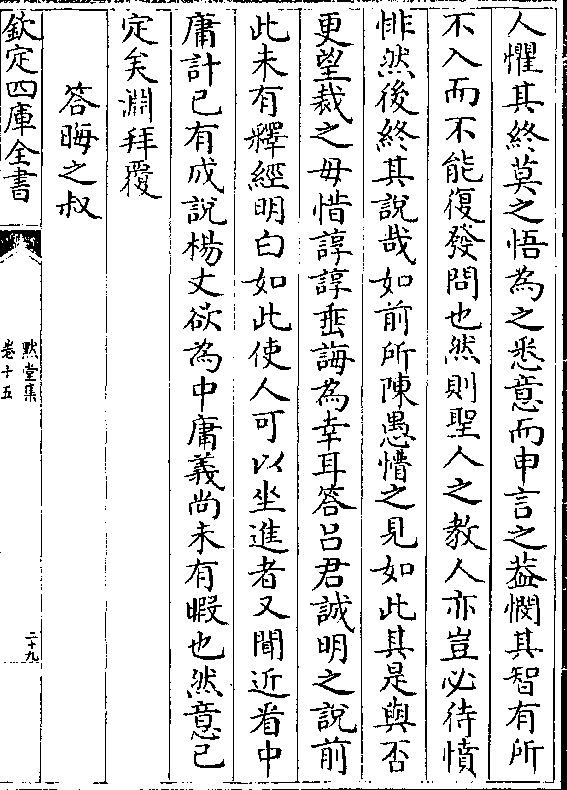 人懼其終莫之悟為之悉意而申言之葢憫其智有所
不入而不能復發問也然則聖人之教人亦豈必待憤
悱然後終其說哉如前所陳愚懵之見如此其是與否
更望裁之毋惜諄諄垂誨為幸耳答呂君誠明之說前
此未有釋經明白如此使人可以坐進者又聞近㸔中
庸計已有成說楊丈欲為中庸義尚未有暇也然意已
定矣淵拜覆
答晦之叔
欽定四庫全書
默堂集
卷十五
二十九